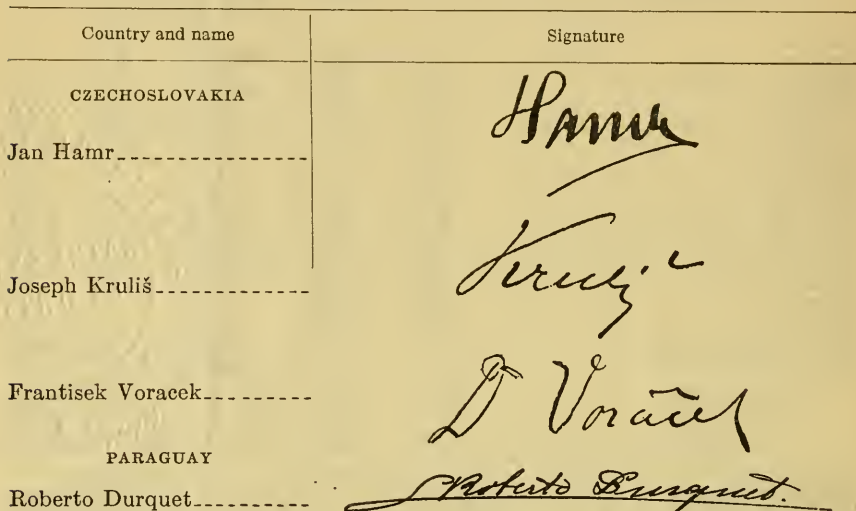 Country and name Signature
CZECHOSLOVAKIA
Jan Hamr Hamr
Joseph Kruliš Kruliš
Frantisek Voracek Dr Voráček
PARAGUAY
Roberto Durquet Roberto Durquet.